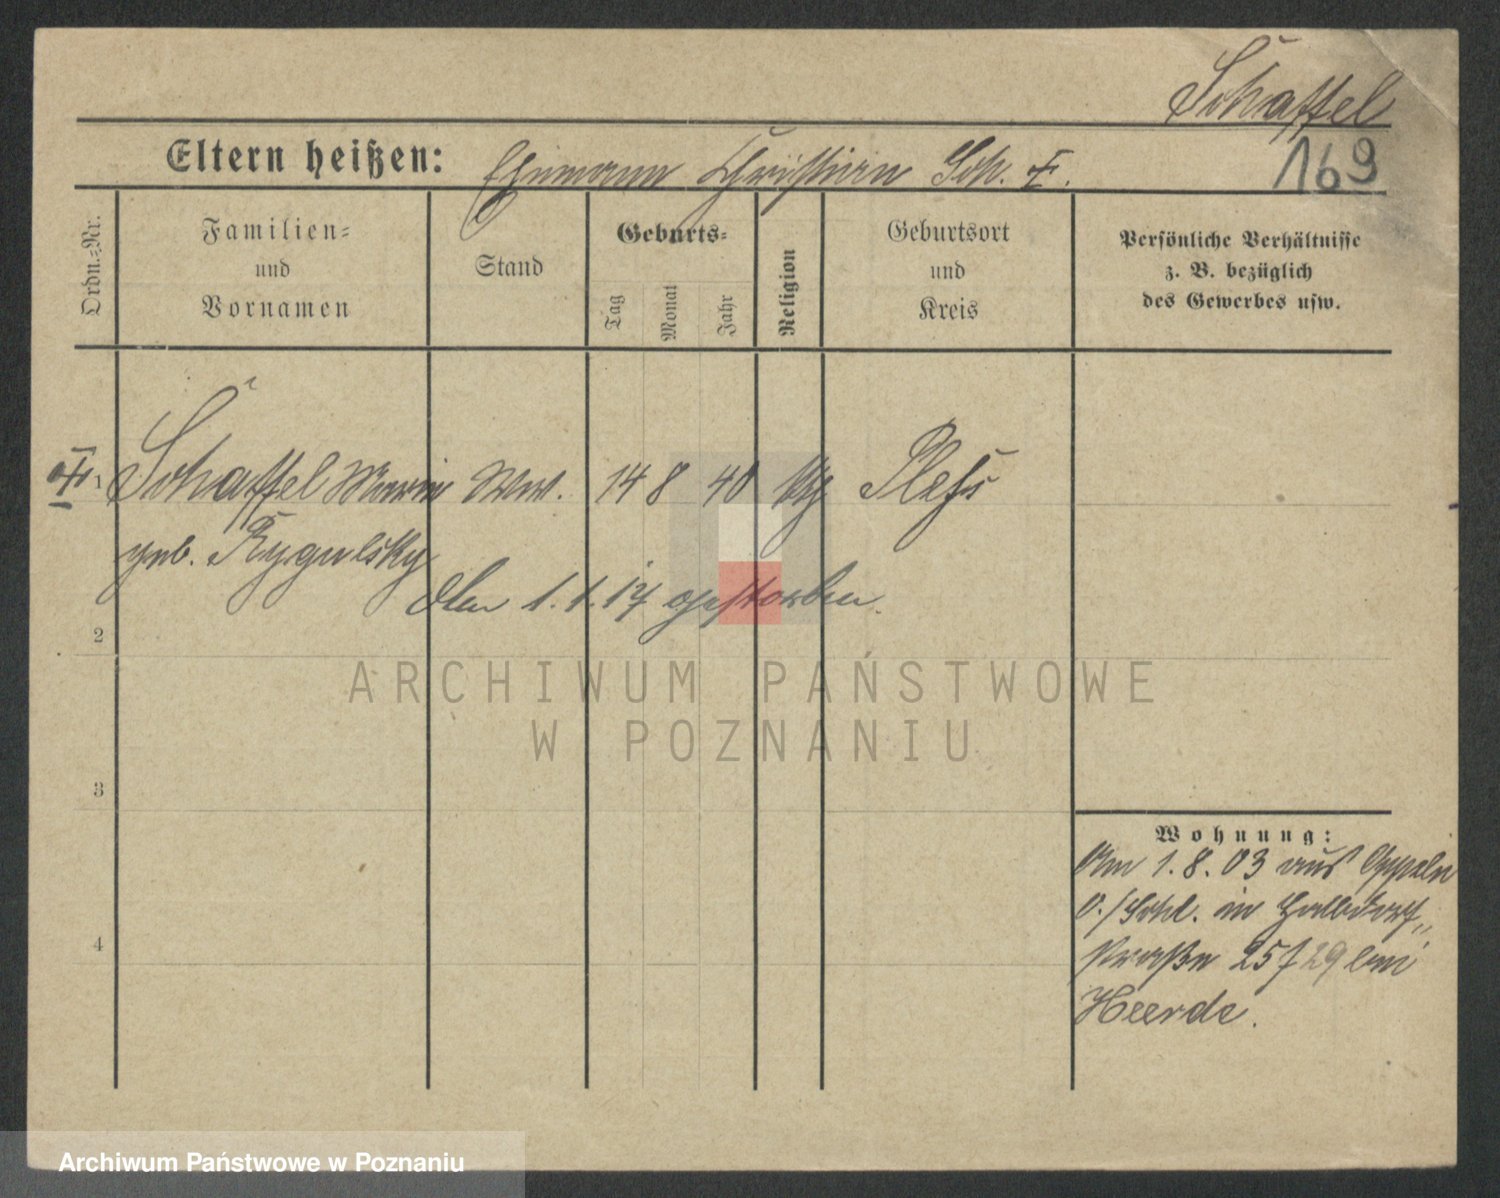 Schaffel
169
Eltern heißen: Ehemann Christian Sch. †.
Ordn.-Nr.
Familien-
und
Vornamen
Stand
Geburts-
Tag
Monat
Jahr
Religion
Geburtsort
und
Kreis
Persönliche Verhältnisse
z. B. bezüglich
des Gewerbes usw.
1 Schaffel Marie Ww. 14 8 40 Pleß
geb. Rygulsky
den 1.1.17 gestorben.
2
3
4
Wohnung:
Am 1.8.03 aus Oppeln
O./Schl. in Halbdorf-
straße 25 29 bei
Heerde.
ARCHIWUM PAŃSTWOWE
W POZNANIU
Archiwum Państwowe w Poznaniu